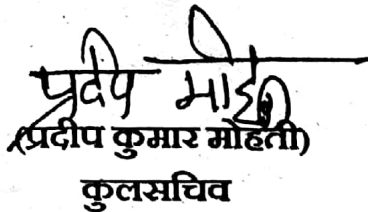 प्रदीप मोहंती
(प्रदीप कुमार मोहंती)
कुलसचिव